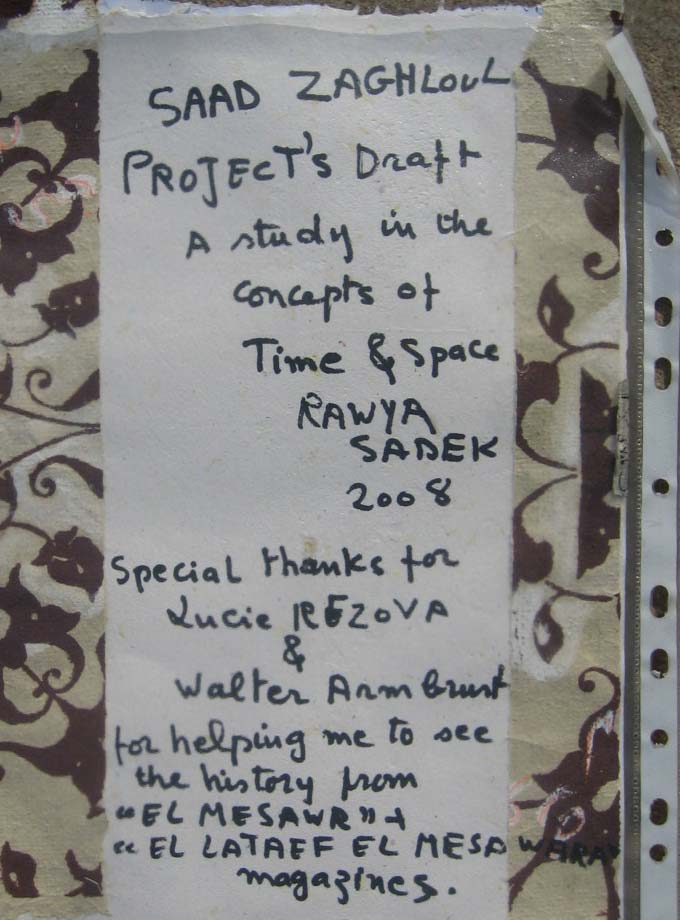 SAAD ZAGHLOUL
PROJECT's Draft
A study in the
concepts of
Time & Space
RAWYA
SADEK
2008
Special thanks for
Lucie REZOVA
&
Walter Armbrust
for helping me to see
the history from
"EL MESAWR" +
"EL LATAEF EL MESAWARA"
magazines.